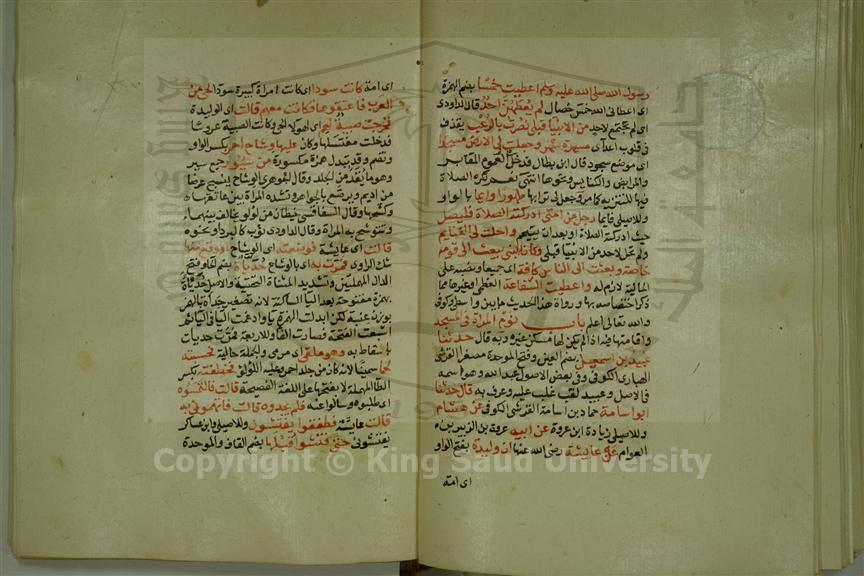 رسول الله صلى الله عليه وسلم اعطيت خمسا بضم الهمزة
اى اعطانى الله خمس خصال لم يعطهن احد قال الداودى
اى لم تجتمع لاحد من الانبيا قبلى نصرت بالرعب يقذف
فى قلوب اعداى مسيرة شهر وجعلت لى الارض مسجدا
اى موضع سجود قال ابن بطال فدخل فى عموم المقابر
والمرابض والكنايس ونحوها انتهى نعم تكره الصلاة
فيها للتنزيه كما مر وجعل لى ترابها طهورا وايما بالواو
وللاصيلى فايما رجل من امتى ادركته الصلاة فليصل
حيث ادركته الصلاة او بعد ان يتيمم واحلت لى الغنايم
ولم تحل لاحد من الانبيا قبلى وكان النبى يبعث الى قومه
خاصة وبعثت الى الناس كافة اى جميعا ونصبه على
الحالية لازم له واعطيت الشفاعة العظمى او غيرها مما
ذكر اختصاصه بها ورواة هذا الحديث ما بين واسطى وكوفى
والله تعالى اعلم باب نوم المراة فى المسجد
واقامتها فيه اذا لم يكن لها مسكن غيره وبه قال حدثنا
عبيد بن اسمعيل بضم العين وفتح الموحدة مصغر القرشى
الهبارى الكوفى وفى بعض الاصول عبد الله وهو اسمه
فى الاصل وعبيد لقب غلب عليه وعرف به قال حدثنا
ابو اسامة حماد بن اسامة القرشى الكوفى عن هشام
وللاصيلى زيادة ابن عروة عن ابيه عروة بن الزبير بن
العوام عن عايشة رضى الله عنها ان وليدة بفتح الواو
اى امة
اى امة كانت سودا اى كانت امراة كبيرة سودا لحى من
العرب فاعتقوها فكانت معهم قالت اى الوليدة
فخرجت صبية لهم اى لهولا الحى وكانت الصبية عروسا
فدخلت مغتسلها وكان عليها وشاح احمر بكسر الواو
وتضم وقد تبدل همزة مكسورة من سيور جمع سير
وهو ما يقد من الجلد وقال الجوهرى الوشاح ينسج عرضا
من اديم ويرصع بالجواهر وتشده المراة بين عاتقها
وكشحها وقال السفاقسى خيطان من لولو يخالف بينهما
وتتوشح به المراة وقال الداودى ثوب كالبرد او نحوه
قالت اى عايشة فوضعته اى الوشاح او وقع منها
شك الراوى فمرت به اى بالوشاح حدياة بضم الحا وفتح
الدال المهملتين وتشديد المثناة التحتية والاصل حدياة
بهمزة مفتوحة بعد اليا الساكنة لانه تصغير حداة بالهمز
بوزن عنبة لكن ابدلت الهمزة يا وادغمت اليا فى اليا ثم
اشبعت الفتحة فصارت الفا وللاربعة فمرت حدياة
باسقاط به وهو ملقى اى مرمى والجملة حالية فحسبته
لحما سمينا لانه كان من جلد احمر وعليه اللولو فخطفته بكسر
الطا المهملة لا بفتحها على اللغة الفصيحة قالت فالتمسوه
اى طلبوه وسالوا عنه فلم يجدوه قالت فاتهمونى به
قالت عايشة فطفقوا يفتشون وللاصيلى وابن عساكر
يفتشونى حتى فتشوا قبلها بضم القاف والموحدة
Copyright © King Saud University